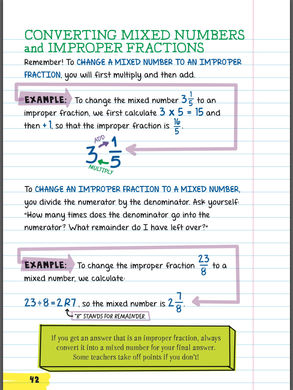 CONVERTING MIXED NUMBERS
and IMPROPER FRACTIONS
Remember! To CHANGE A MIXED NUMBER TO AN IMPROPER
FRACTION, you will first multiply and then add.
EXAMPLE: To change the mixed number 3 1/5 to an
improper fraction, we first calculate 3 × 5 = 15 and
then + 1, so that the improper fraction is 16/5.
ADD
3 1/5
MULTIPLY
To CHANGE AN IMPROPER FRACTION TO A MIXED NUMBER,
you divide the numerator by the denominator. Ask yourself:
"How many times does the denominator go into the
numerator? What remainder do I have left over?"
EXAMPLE: To change the improper fraction 23/8 to a
mixed number, we calculate:
23÷8 = 2 R7, so the mixed number is 2 7/8.
"R" STANDS FOR REMAINDER
If you get an answer that is an improper fraction, always
convert it into a mixed number for your final answer.
Some teachers take off points if you don't!
42